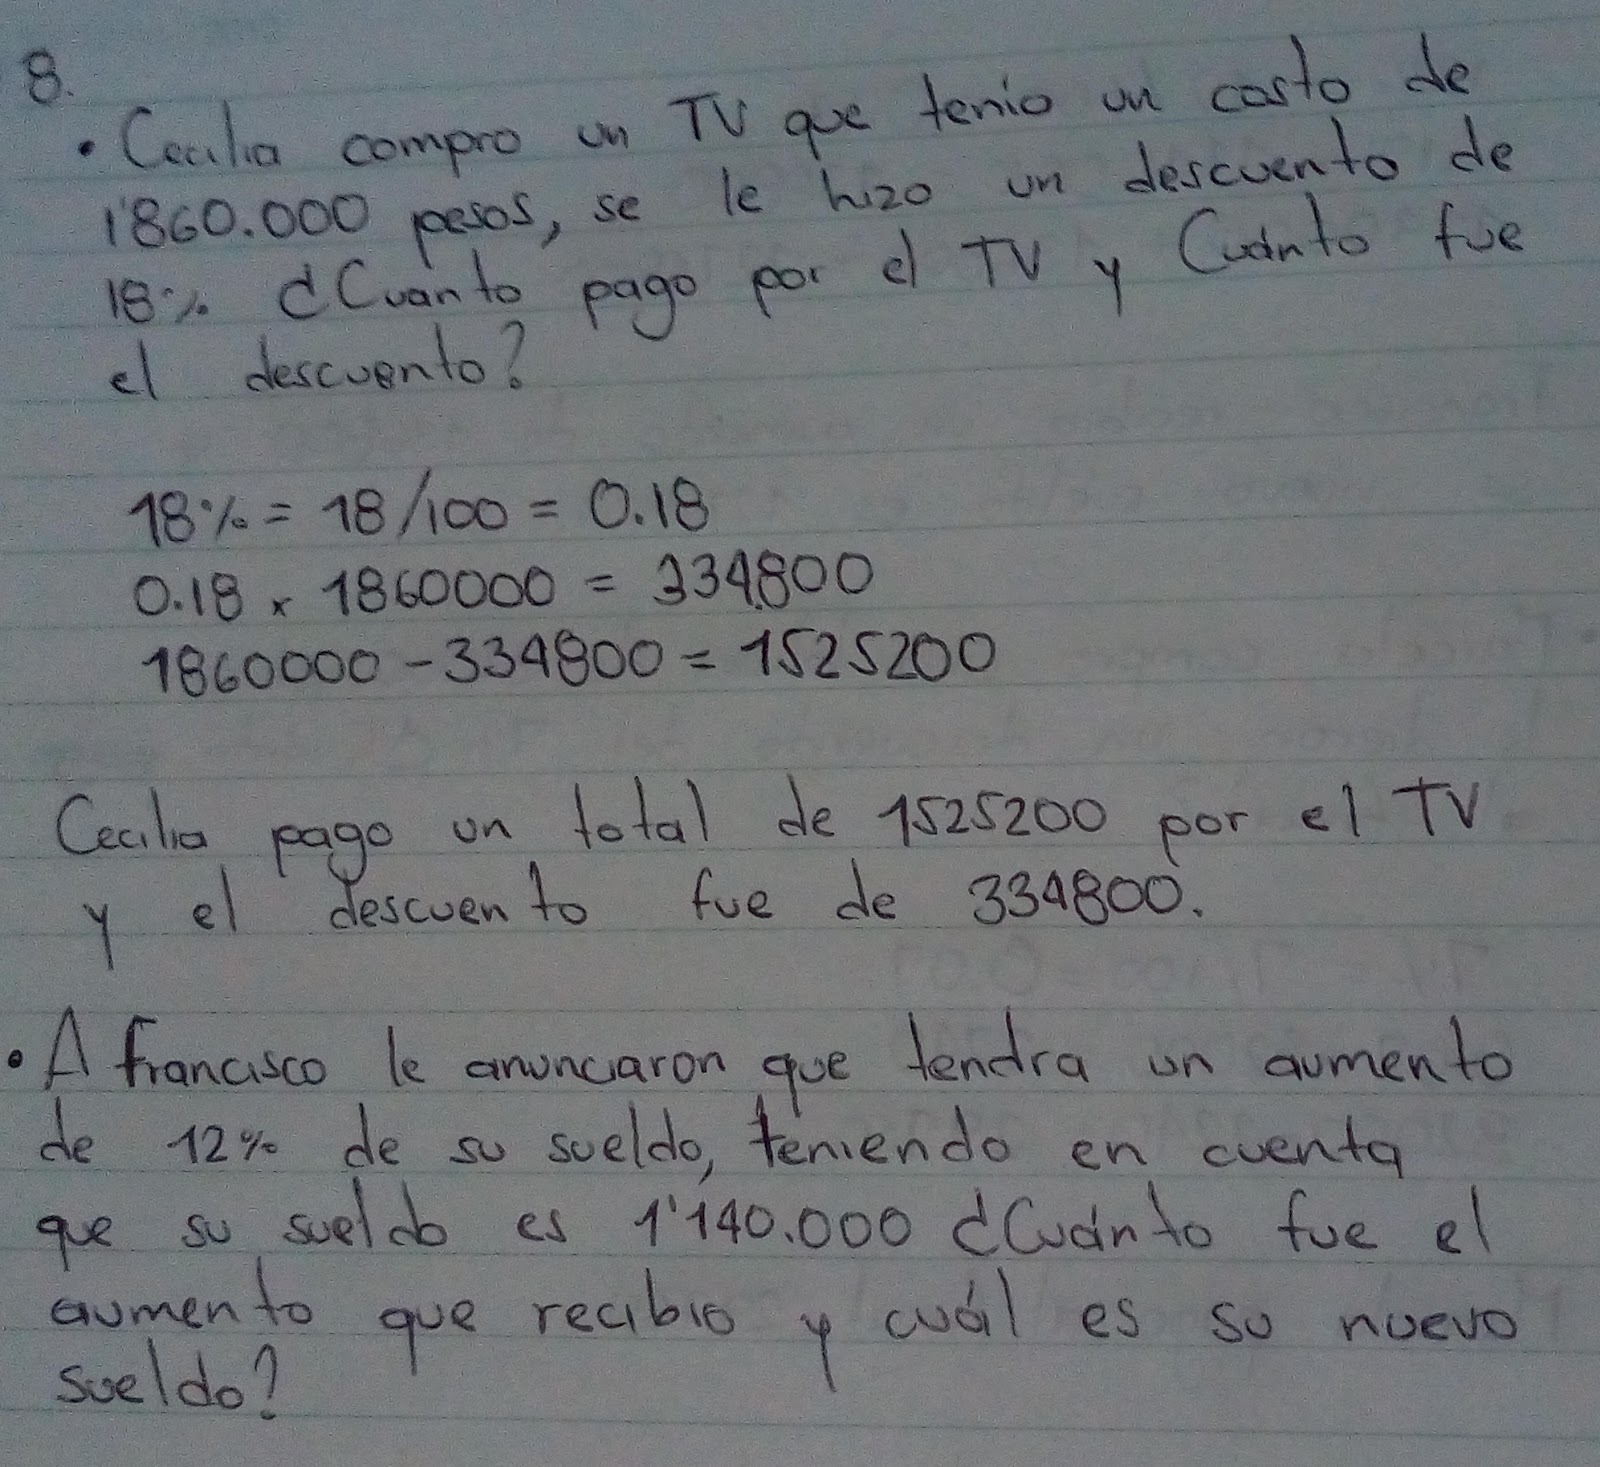 8.
• Cecilia compro un TV que tenia un costo de
1'860.000 pesos, se le hizo un descuento de
18% ¿Cuanto pago por el TV y Cuánto fue
el descuento?
18% = 18/100 = 0.18
0.18 x 1860000 = 334.800
1860000 - 334800 = 1525200
Cecilia pago un total de 1525200 por el TV
y el descuento fue de 334800.
• A francisco le anunciaron que tendra un aumento
de 12% de su sueldo, teniendo en cuenta
que su sueldo es 1'140.000 ¿Cuánto fue el
aumento que recibio y cuál es su nuevo
sueldo?